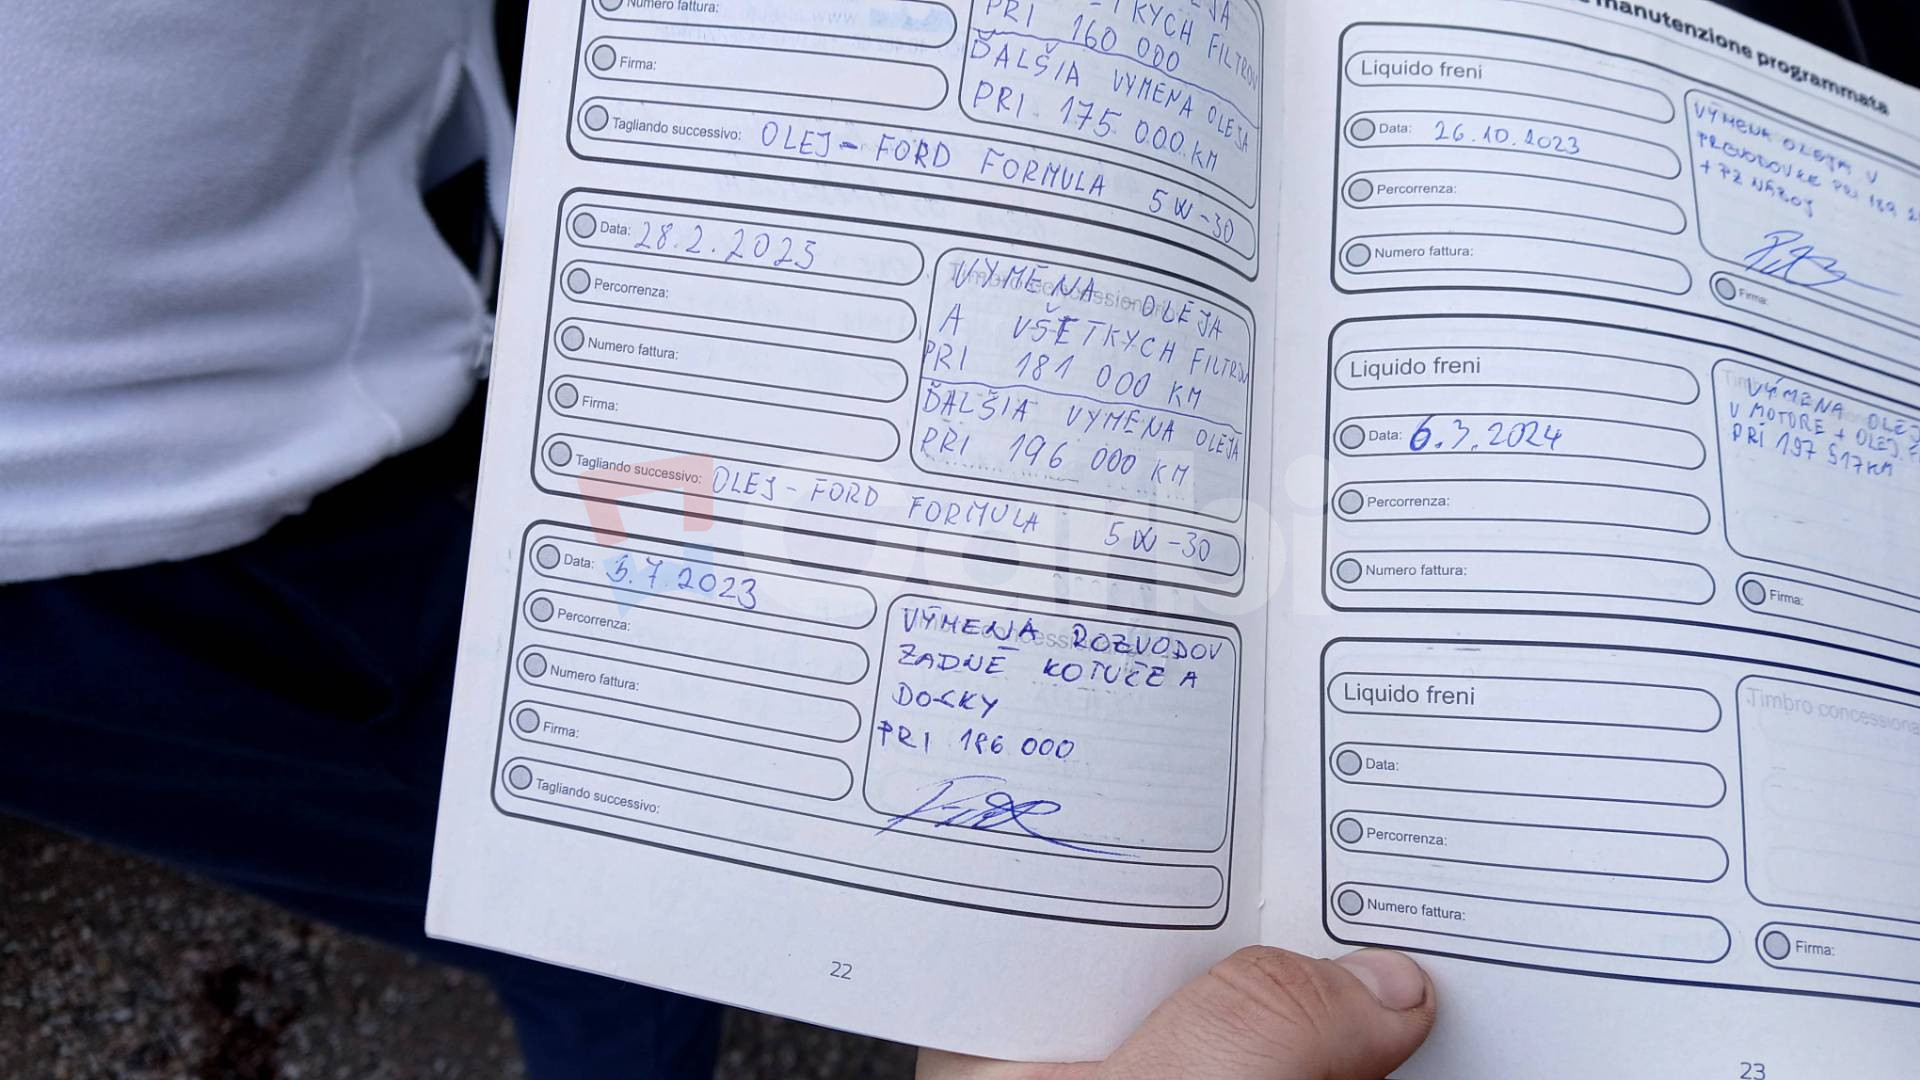 Numero fattura:
Firma:
Tagliando successivo: OLEJ - FORD FORMULA 5W-30
KÝCH FILTROV
PRI 160 000
ĎALŠIA VÝMENA OLEJA
PRI 175 000 KM
Data: 28.2.2023
Percorrenza:
Numero fattura:
Firma:
Tagliando successivo: OLEJ - FORD FORMULA 5W-30
VÝMENA OLEJA
A VŠETKÝCH FILTROV
PRI 181 000 KM
ĎALŠIA VÝMENA OLEJA
PRI 196 000 KM
Data: 5.7.2023
Percorrenza:
Numero fattura:
Firma:
Tagliando successivo:
VÝMENA ROZVODOV
ZADNÉ KOTUČE A
DOSKY
PRI 186 000
22
manutenzione programmata
Liquido freni
Data: 26.10.2023
Percorrenza:
Numero fattura:
Firma:
VÝMENA OLEJA V
PREVODOVKE PRI 189
Liquido freni
Data: 6.3.2024
Percorrenza:
Numero fattura:
Firma:
VÝMENA OLEJ
V MOTORE + OLEJ. F
PRI 197 517KM
Liquido freni
Data:
Percorrenza:
Numero fattura:
Firma:
Timbro concessiona
23